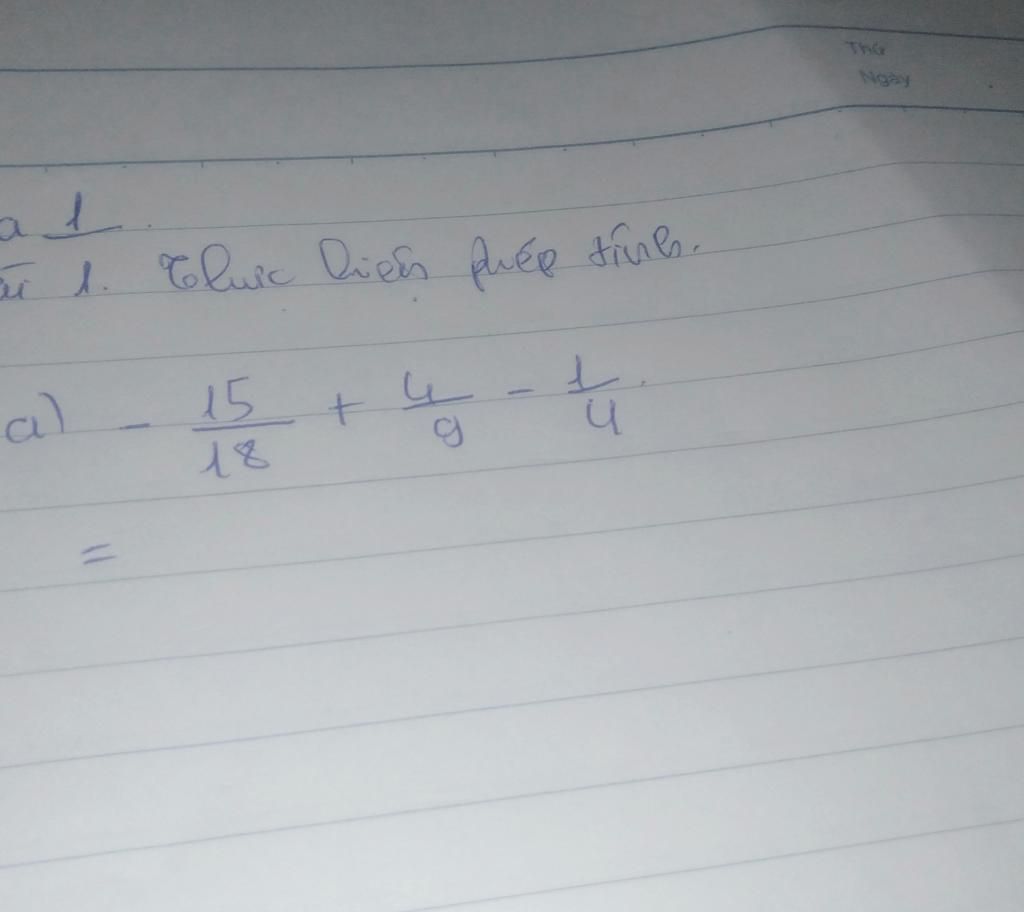 Thứ
Ngày
1
1. Thực hiện phép tính.
a) - 15/18 + 4/9 - 1/4.
=